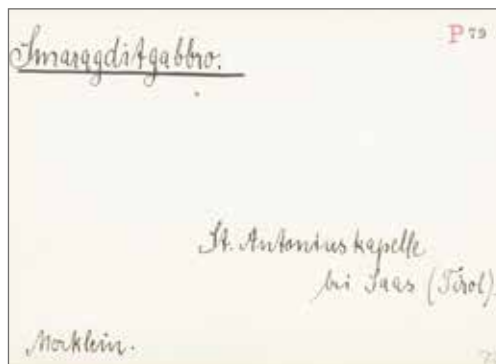 Smaragditgabbro.
P 79
St. Antoniuskapelle
bei Saas (Tirol)